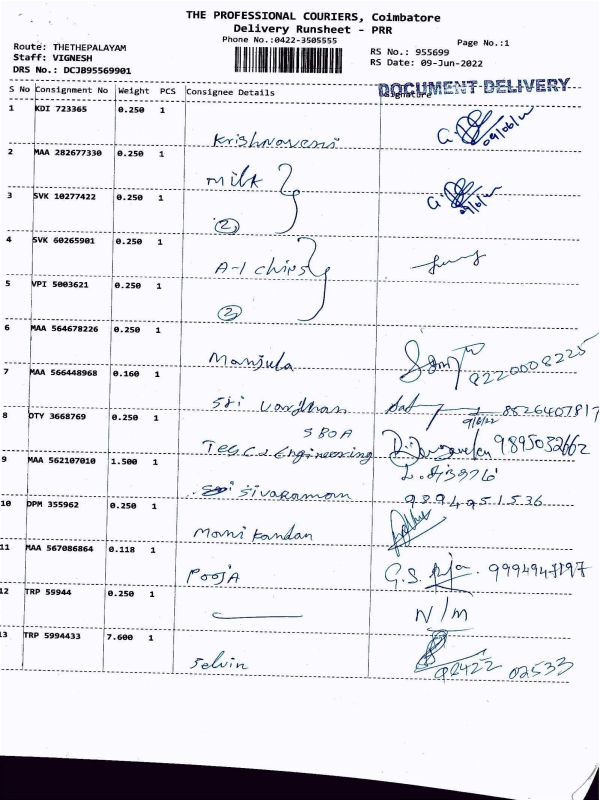 THE PROFESSIONAL COURIERS, Coimbatore
Delivery Runsheet - PRR
Phone No.:0422-3505555
Page No.:1
Route: THETHEPALAYAM
Staff: VIGNESH
DRS No.: DCJB95569901
RS No.: 955699
RS Date: 09-Jun-2022
DOCUMENT DELIVERY
S No Consignment No Weight PCS Consignee Details Signature
1 KDI 723365 0.250 1 Krishnaveni 09/06/22
2 MAA 282677330 0.250 1 milk
3 SVK 10277422 0.250 1 2
4 SVK 60265901 0.250 1 A-1 chips
5 VPI 5003621 0.250 1 2
6 MAA 564678226 0.250 1 Manjula 9220008225
7 MAA 566448968 0.160 1 Sri Vardhan 9/6/22 8526407817
8 OTY 3668769 0.250 1 SBOA
Engineering 9895032662
9 MAA 562107010 1.500 1 Sivaraman 9894951536
10 DPM 355962 0.250 1 Manikandan
11 MAA 567086864 0.118 1 POOJA G.S. 9994947197
12 TRP 59944 0.250 1 N/M
13 TRP 5994433 7.600 1 Selvin 98422 02533